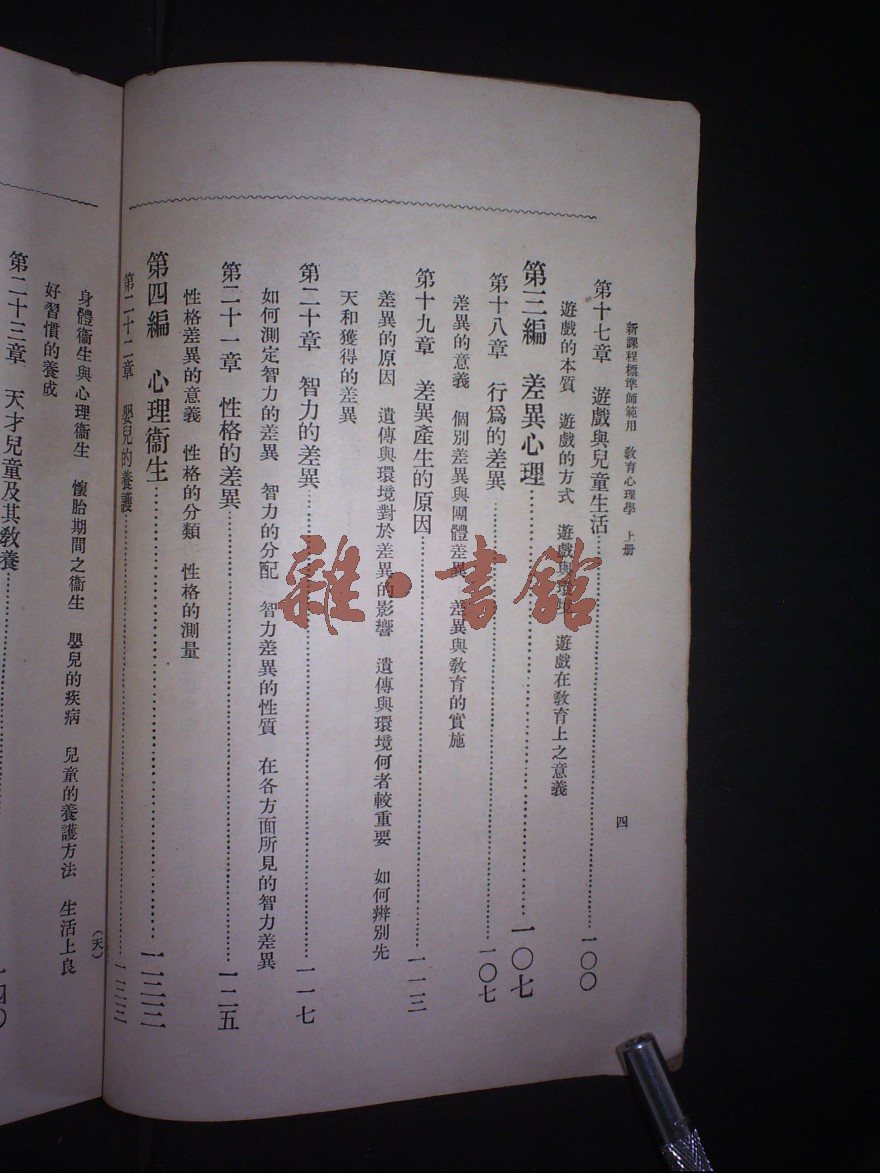 新課程標準師範用　敎育心理學　上册
四
第十七章　遊戲與兒童生活……一〇〇
遊戲的本質　遊戲的方式　遊戲與環境　遊戲在敎育上之意義
第三編　差異心理……一〇七
第十八章　行爲的差異……一〇七
差異的意義　個別差異與團體差異　差異與敎育的實施
第十九章　差異產生的原因……一一三
差異的原因　遺傳與環境對於差異的影響　遺傳與環境何者較重要　如何辨別先
天和獲得的差異
第二十章　智力的差異……一一七
如何測定智力的差異　智力的分配　智力差異的性質　在各方面所見的智力差異
第二十一章　性格的差異……一二五
性格差異的意義　性格的分類　性格的測量
第四編　心理衞生……一三三
第二十二章　嬰兒的養護……一三三
（天）
身體衞生與心理衞生　懷胎期間之衞生　嬰兒的疾病　兒童的養護方法　生活上良
好習慣的養成
第二十三章　天才兒童及其敎養……一四〇
雜·書館